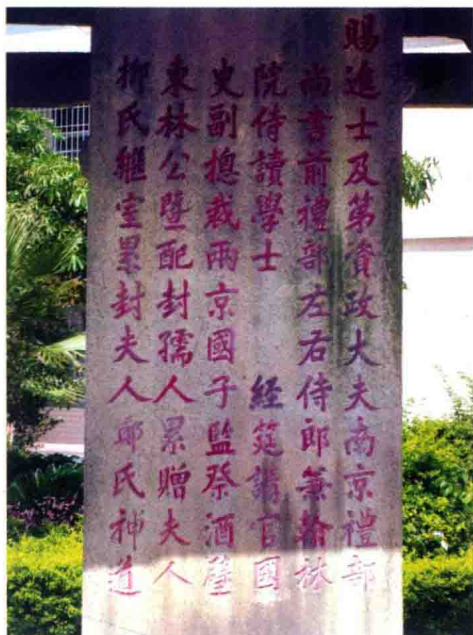 賜進士及第資政大夫南京禮部
尚書前禮部左右侍郎兼翰林
院侍讀學士　　經筵講官國
史副總裁兩京國子監祭酒瑩
東林公暨配封孺人累贈夫人
柳氏繼室累封夫人鄭氏神道